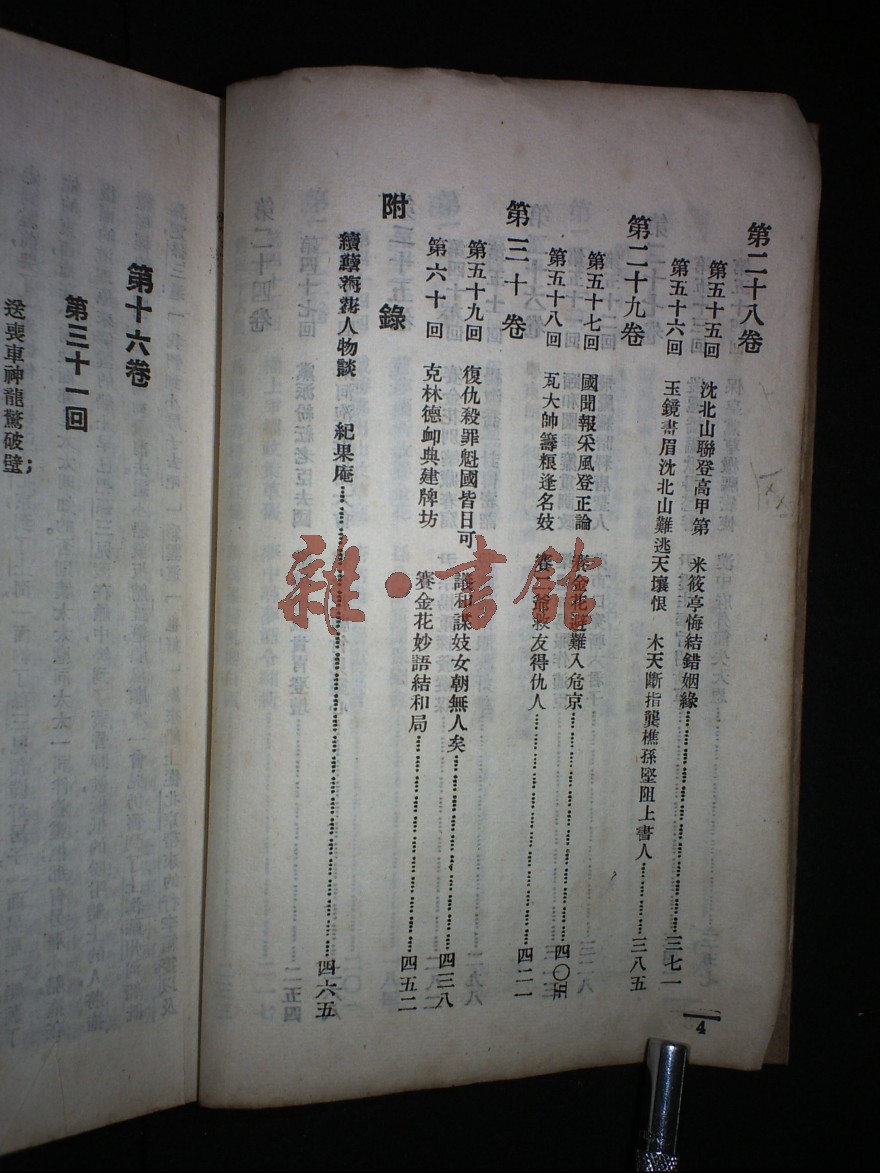 第二十八卷
第五十五回　沈北山聯登高甲第　米筱亭悔結錯姻緣……三七一
第五十六回　玉鏡書眉沈北山難逃天壤恨　木天斷指龔樵孫堅阻上書人……三八五
第二十九卷
第五十七回　國聞報采風登正論　賽金花避難入危京……四〇五
第五十八回　瓦大帥籌粮逢名妓　賽二爺救友得仇人……四二一
第三十卷
第五十九回　復仇殺罪魁國皆日可　議和謀妓女朝無人矣……四三八
第六十回　克林德卹典建牌坊　賽金花妙語結和局……四五二
附錄
續孽海花人物談　紀果庵……四六五
4
第十六卷
第三十一回
送喪車神龍驚破壁；
雜·書館